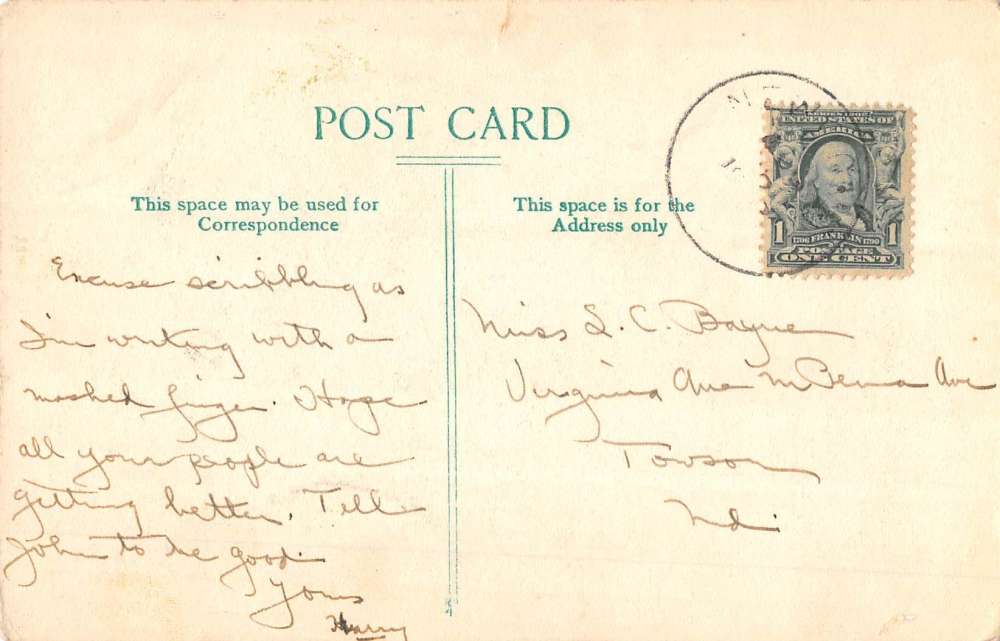 POST CARD
This space may be used for
Correspondence
This space is for the
Address only
SERIES 1902
UNITED STATES OF
AMERICA
1 1706 FRANKLIN 1790 1
POSTAGE
ONE CENT
Excuse scribbling as
I'm writing with a
mashed finger. Hope
all your people are
getting better. Tell
John to be good.
Yours
Harry
Miss L. C. Bayne
Virginia Ave Penna Ave
Towson
Md.